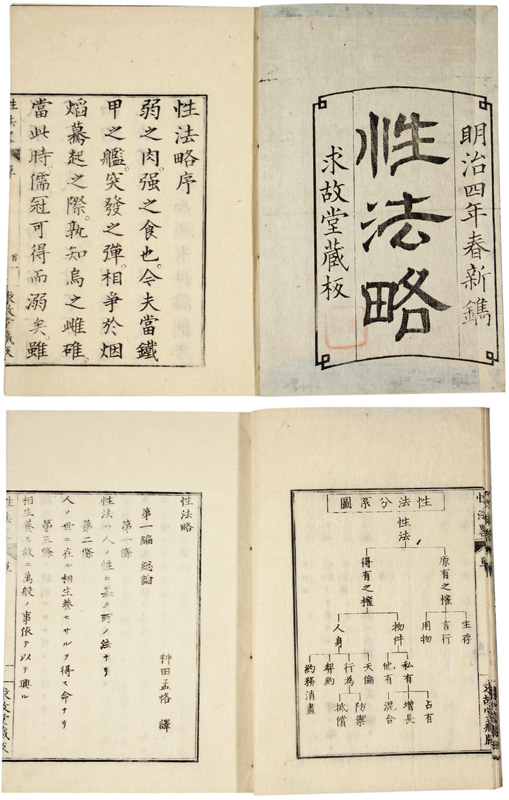 明治四年春新鐫
性法略
求故堂蔵板
性法略序
弱之肉。强之食也。今夫當鐵
甲之艦。突發之彈。相爭於烟
熖驀起之際。孰知烏之雌碓。
當此時儒冠可得而溺矣。雖
性法略
序
首
求故堂蔵板
性法分系圖
性法
原有之權
得有之權
生存
言行
用物
物件
人身
私有
他有
天倫
行為
契約
約務消盡
占有
増長
混合
防禦
抵償
求故堂蔵板
性法略
神田孟恪 譯
第一編 総論
第一條
性法ハ人ノ性ニ基ク所ノ法ナリ
第二條
人ノ世ニ在ル相生養セサルヲ得ス命ナリ
第三條
相生養ス故ニ萬般ノ事依テ以テ興ル
求故堂蔵板